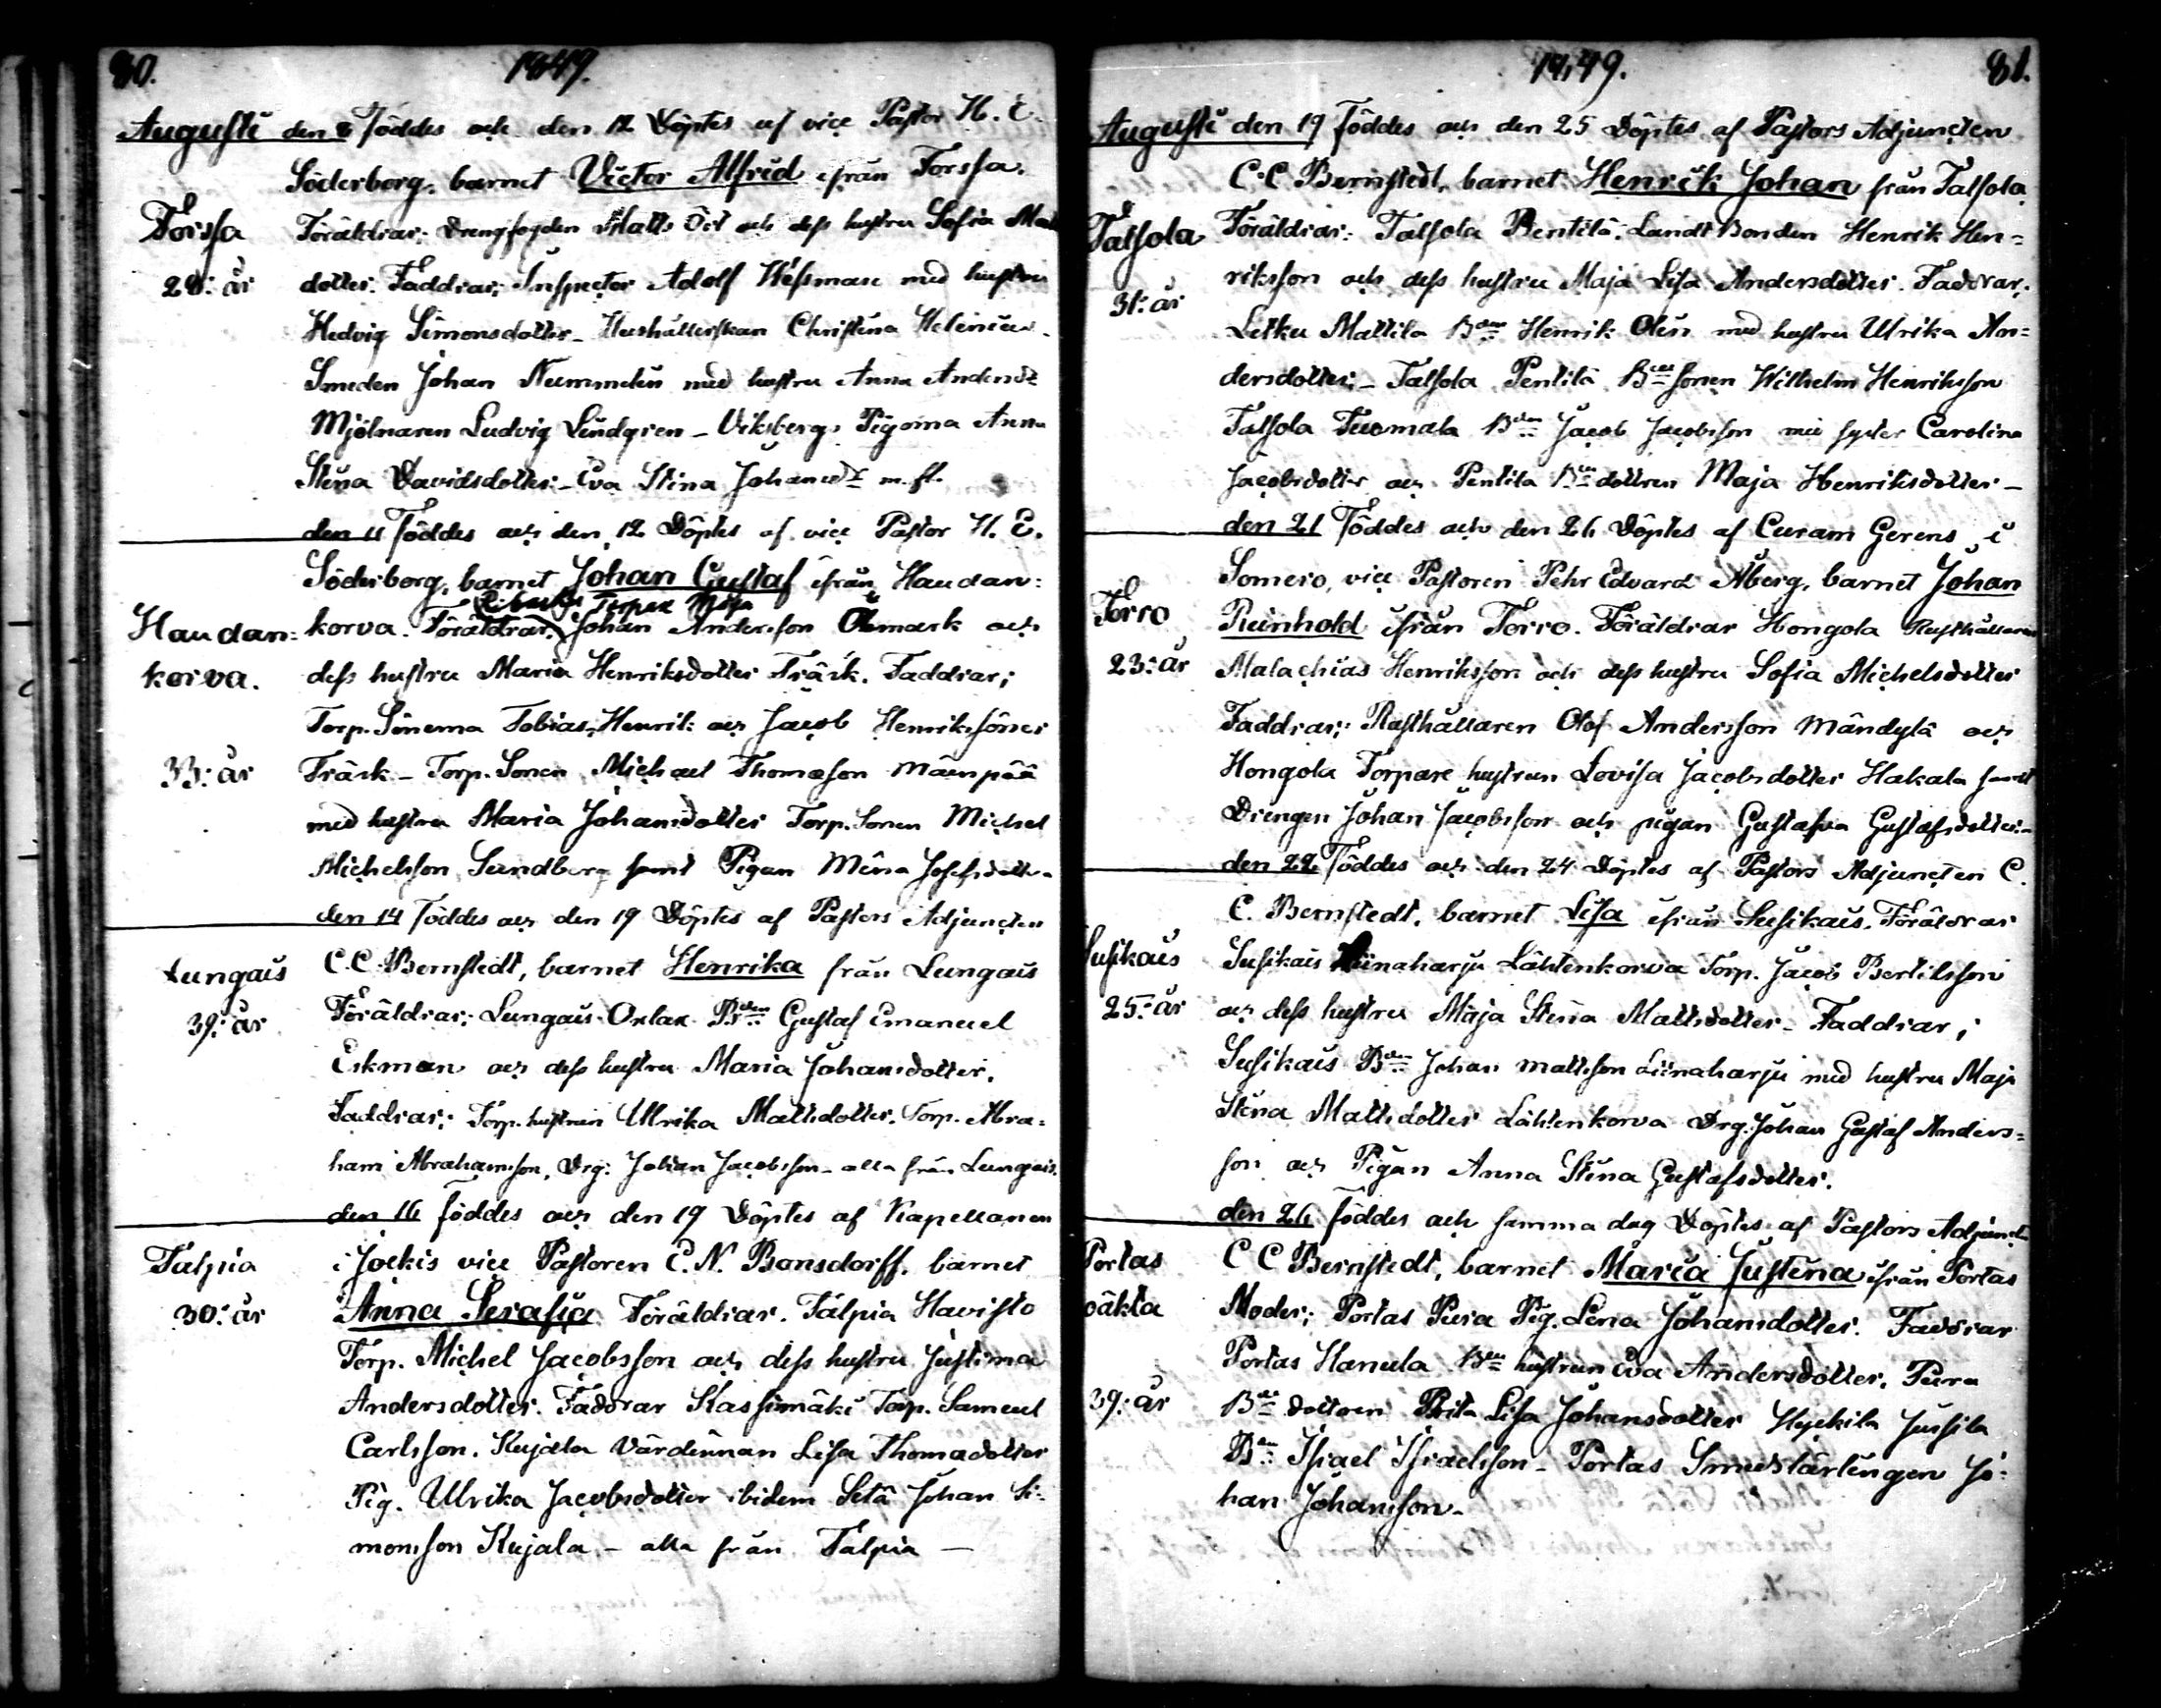 80.
1849.
Augusti den 8 Föddes och den 12 Döptes af vice Pastor H. E.
Söderborg, barnet Victor Alfrid ifrån Forssa.
Forssa
Föräldrar; Drengfogden Matts Öst och dess hustru Sofia Mats
28: år
dotter. Faddrar; Inspector Adolf Wessman med hustru
Hedvig Simonsdotter - Hushållerskan Christina Helenius -
Smeden Johan Nummelin med hustru Anna Andersdr
Mjölnaren Ludvig Lindgren - Viksbergs Pigorna Anna
Stina Davidsdotter - Eva Stina Johansdr m.fl.
den 11 Föddes och den 12 Döptes af vice Pastor H. E.
Söderborg, barnet Johan Gustaf ifrån Haudan:
Torpar Måg
Haudan:
korva. Föräldrar; Johan Andersson Ekmark och
korva.
dess hustru Maria Henriksdotter Träsk. Faddrar;
Torp. Sönerna Tobias, Henrik och Jacob Henrikssöner
33: år
Träsk - Torp. Sonen Michael Thomasson Mäenpää
med hustru Maria Johansdotter Torp. Sonen Michel
Michelsson Sundberg samt Pigan Mina Josefsdotter
den 14 Föddes och den 19 Döptes af Pastors Adjuncten
Lungais
C.C. Bernstedt, barnet Henrika från Lungais
39: år
Föräldrar; Lungais Oxlax Bden Gustaf Emanuel
Eskman och dess hustru Maria Johansdotter.
Faddrar; Torp. hustrun Ullrika Mattsdotter. Torp. Abra:
ham Abrahamsson, Drg: Johan Jacobsson - alla från Lungais.
den 16 föddes och den 19 Döptes af Kapellanen
Talpia
i Jockis vice Pastoren C. N. Bonsdorff, barnet
30: år
Anna Serafia Föräldrar. Talpia Havisto
Torp. Michel Jacobsson och dess hustru Justina
Andersdotter. Faddrar Kassinmäki Torp. Samuel
Carlsson. Kujala Värdinnan Lisa Thomadotter
Pig. Ulrika Jacobsdotter ibidem Setä Johan Si:
monsson Kujala, - alla från Talpia -
1849.
81.
Augusti den 19 föddes och den 25 Döptes af Pastors Adjuncten
C.C Bernstedt, barnet Henrik Johan från Talsola
Talsola
Föräldrar: Talsola Pentilä Landt Bonden Henrik Hen=
31: år
riksson och dess hustru Maja Lisa Andersdotter. Faddrar;
Letku Mattila Bden Henrik Olin med hustru Ulrika An=
dersdotter; - Talsola Pentilä Bde sonen Wilhelm Henriksson
Talsola Tuomala Bden Jacob Jacobsson med syster Carolina
Jacobsdotter och Pentila Bde dottren Maja Henriksdotter -
den 21 Föddes och den 26 Döptes af Curam Gerens i
Somero, vice Pastoren Pehr Edvard Åberg, barnet Johan
Torro
Reinhold ifrån Torro. Föräldrar Hongola Rusthållaren
23: år
Malachias Henriksson och dess hustru Sofia Michelsdotter
Faddrar; Rusthållaren Olof Andersson Mändylä och
Hongola Torpare hustrun Lovisa Jacobsdotter Hakala samt
Drengen Johan Jacobsson och pigan Gustafva Gustafsdotter -
den 22 Föddes och den 24 Döptes af Pastors Adjuncten C.
C. Bernstedt, barnet Lisa ifrån Susikais. Föräldrar
Susikais
Susikais Liinaharju Lähtenkorva Torp. Jacob Bertilsson
25: år
och dess hustru Maja Stina Mattsdotter - Faddrar;
Susikais Bden Johan Mattsson Liinaharju med hustru Maja
Stina Mattsdotter Lähtenkorva Drg. Johan Gustaf Anders=
son och Pigan Anna Stina Gustafsdotter.
den 26 föddes och samma dag Döptes af Pastors Adjunct
Portas
C C Bernstedt, barnet Maria Justina ifrån Portas
oäkta
Moder; Portas Pura Pig. Lena Johansdotter. Faddrar
Portas Hanula Bde hustrun Eva Andersdotter. Pura
39: år
Bde dottren Brita Lisa Johansdotter Hyckila Jussila
Bden Israel Israelsson - Portas Smedslärlingen Jo=
han Johansson -